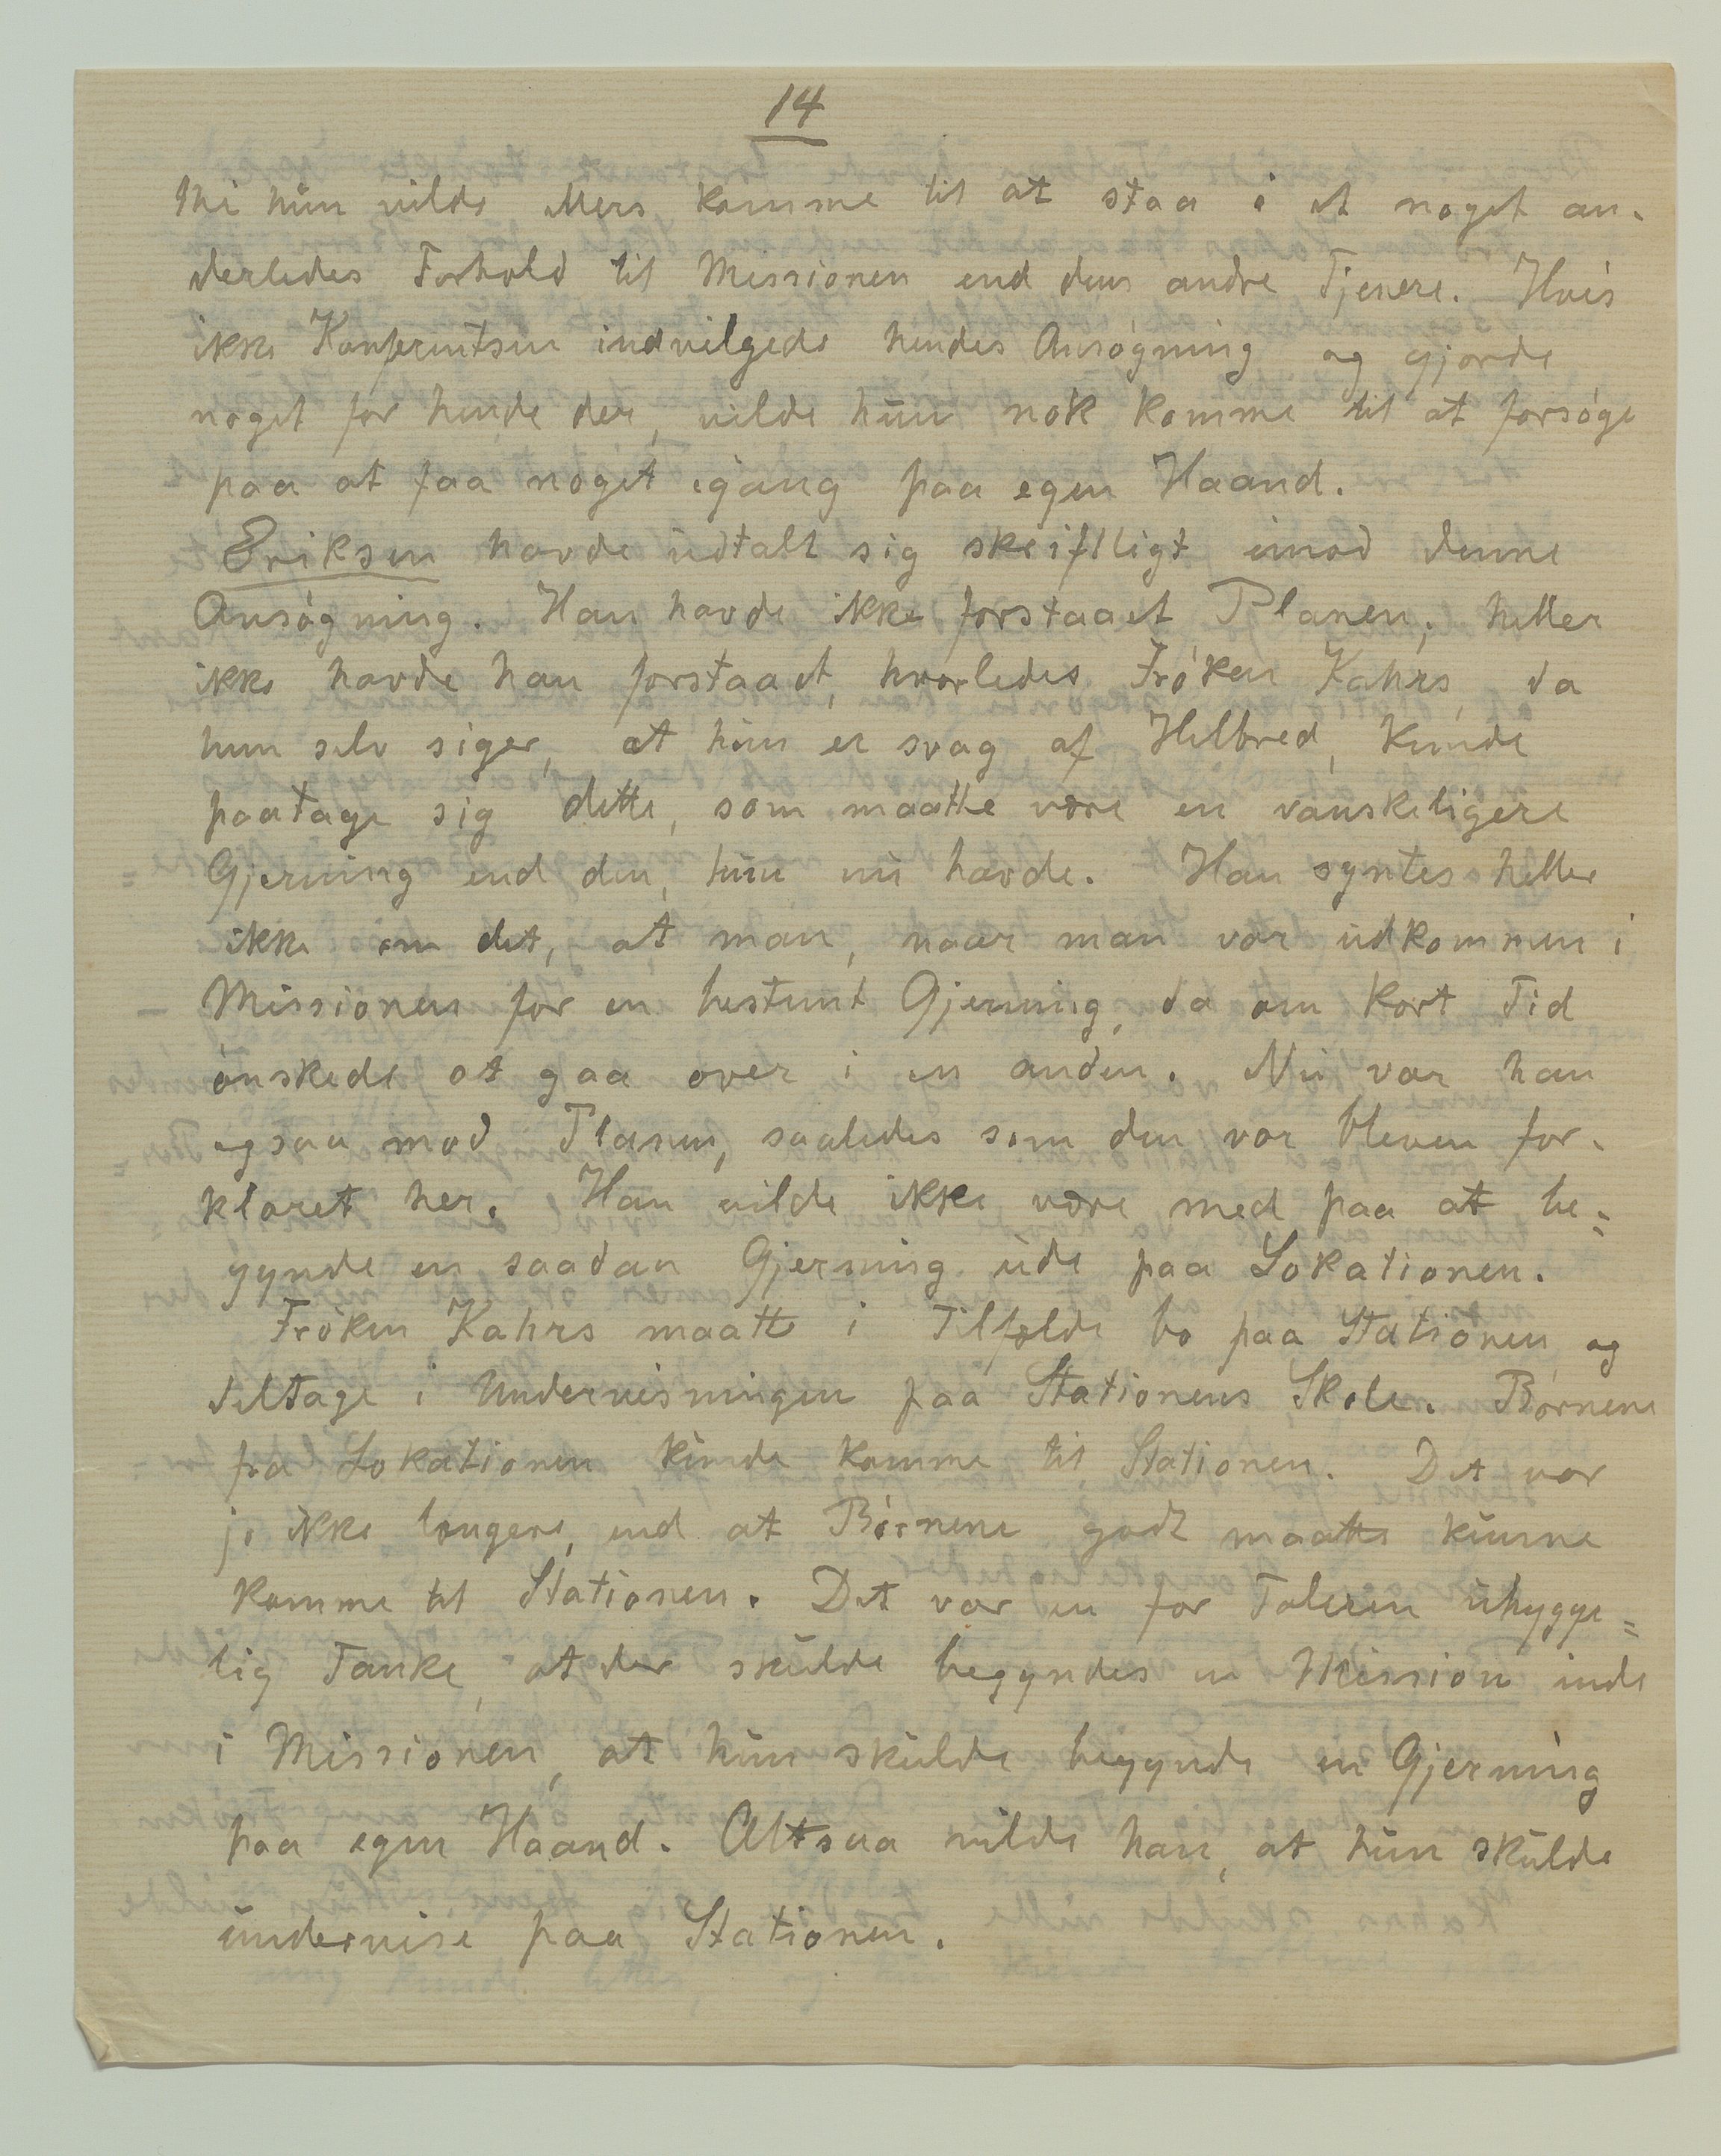 14
thi hun vilde ellers komme til at staa i et noget an-
derledes Forhold til Missionen end dens andre Tjenere. Hvis
ikke Konferentsen indvilgede hendes Ansøgning og gjorde
noget for hende der, vilde hun nok komme til at forsøge
paa at faa noget igang paa egen Haand.
Eriksen havde udtalt sig skriftligt imod denne
Ansøgning. Han havde ikke forstaaet Planen; heller
ikke havde han forstaaet, hvorledes Frøken Kahrs, da
hun selv siger, at hun er svag af Helbred, kunde
paatage sig dette, som maatte være en vanskeligere
Gjerning end den, hun nu havde. Han syntes heller
ikke om det, at man, naar man var udkommen i
Missionen for en bestemt Gjerning, da om kort Tid
ønskede at gaa over i en anden. Nu var han
ogsaa mod Planen, saaledes som den var bleven for-
klaret her. Han vilde ikke være med paa at be=
gynde en saadan Gjerning ude paa Lokationen.
Frøken Kahrs maatte i Tilfælde bo paa Stationen og
deltage i Undervisningen paa Stationens Skole. Børnene
fra Lokationen kunde komme til Stationen. Det var
jo ikke længere, end at Børnene godt maatte kunne
komme til Stationen. Det var en for Taleren uhygge=
lig Tanke, at der skulde begyndes en Mission inde
i Missionen, at hun skulde begynde en Gjerning
paa egen Haand. Altsaa vilde han, at hun skulde
undervise paa Stationen.